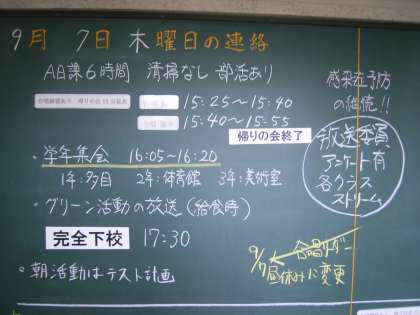 9月 7日 木曜日の連絡
A日課6時間 清掃なし 部活あり
15:25～15:40
15:40～15:55
帰りの会終了
・学年集会 16:05～16:20
1年:多目 2年:体育館 3年:美術室
・グリーン活動の放送(給食時)
完全下校 17:30
・朝活動はテスト計画
感染症予防
の継続!!
放送委員
アンケート有
各クラス
ストリーム
合唱リーダー
9/7昼休みに変更